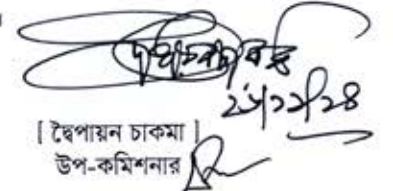 ২৬/১১/২৪
[ দ্বৈপায়ন চাকমা ]
উপ-কমিশনার